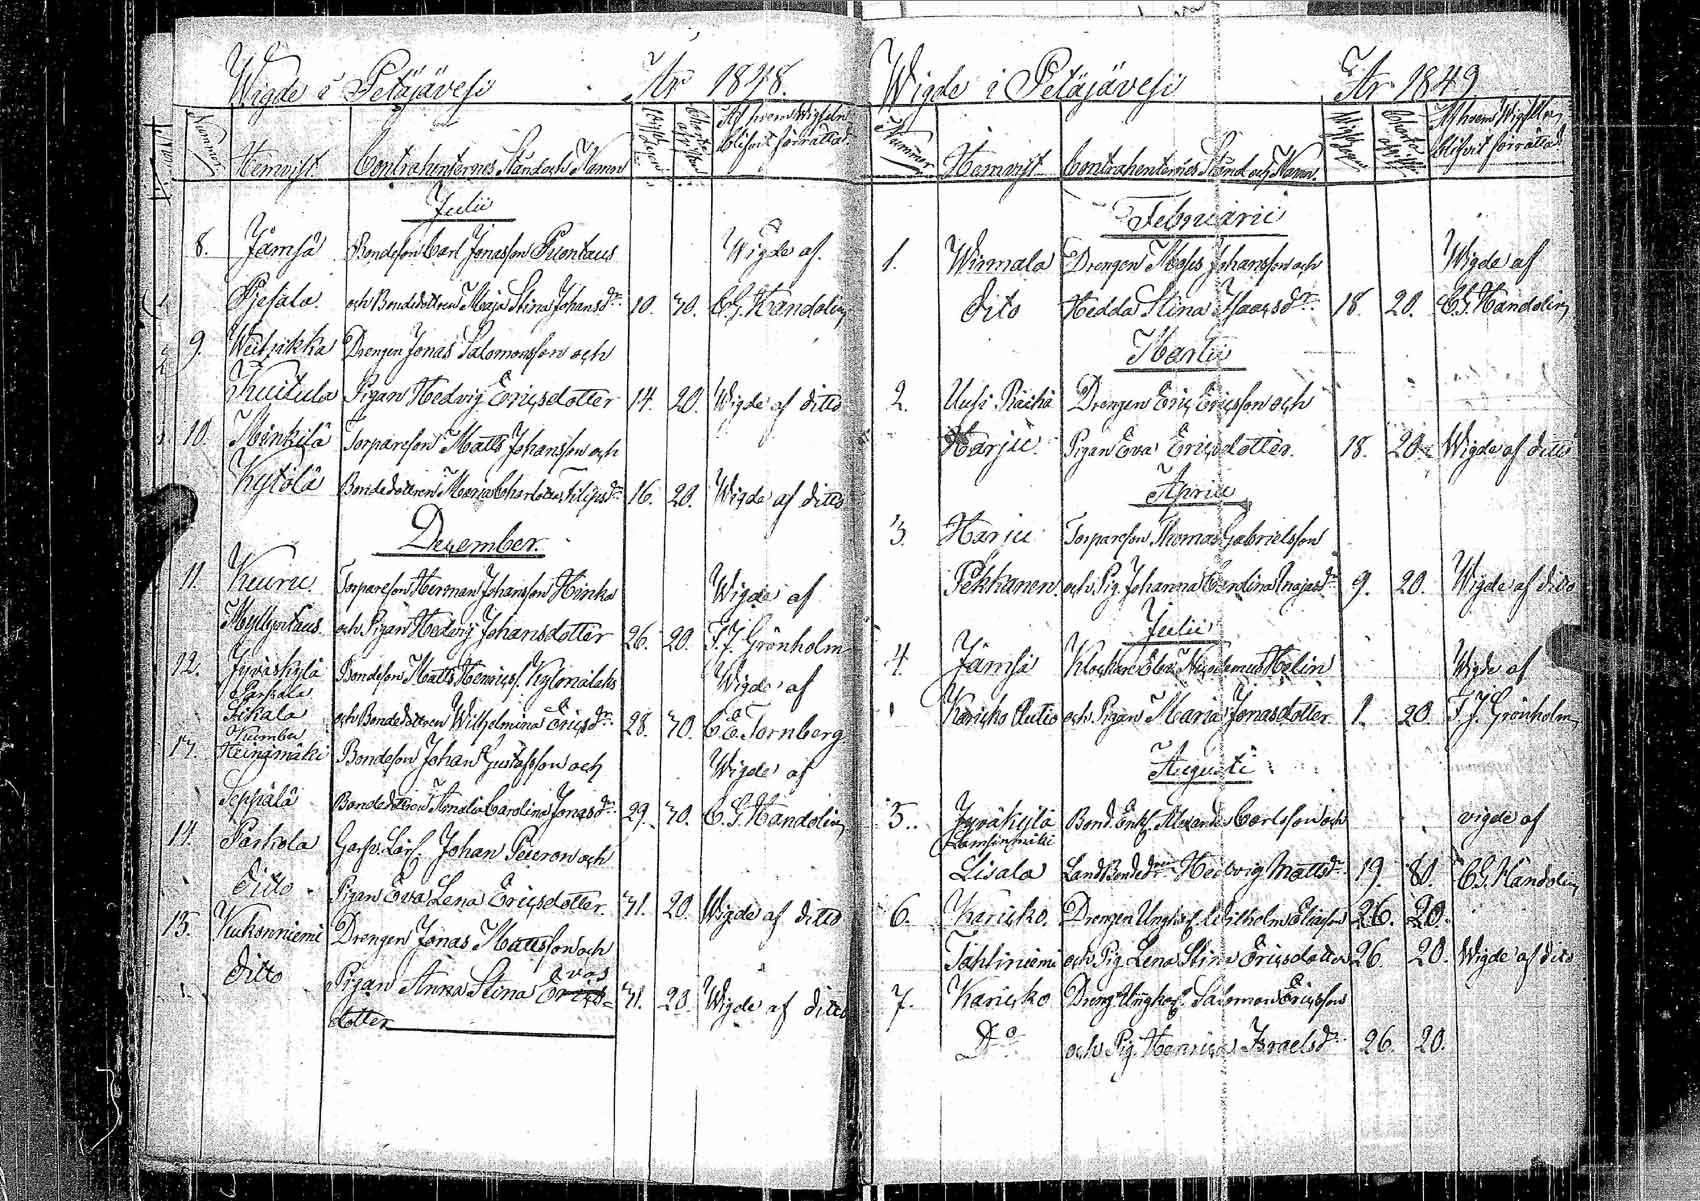 Wigde i Petäjävesi År 1848.
Nummer Hemvist. Contrahenternes Stånd och Namn Af hvem Wigseln blifvit förrättad.
Julii
8. Jämsä Bondeson Carl Jonasson Wigde af
och Bondedottren Maja Stina Johansdr 10. 30. C.G. Handolin
9. Drengen Jonas Salomonsson och
Kuitula Pigan Hedvig Ericsdotter 14. 20. Wigde af ditto
10. Torpareson Matts Johansson och
Kytölä Bondedottren Maria Charlotta Filipsdr 16. 20. Wigde af ditto
December.
11. Kuuru. Torpareson Herman Johansson Hinka Wigde af
och Pigan Hedvig Johansdotter 26. 20. F.J. Grönholm
12. Jyväskylä Bondeson Matts Henricss. Wigde af
och Bondedottren Wilhelmina Ericsdr 28. 30. C.E. Tornberg.
13. Heinämäki Bondeson Johan Gustafsson och Wigde af
Seppälä Bondedottren Amalia Carolina Jonasdr 29. 30. C.G. Handolin
14. Parkola Johan Peterson och
Ditto Pigan Eva Lena Ericsdotter. 31. 20. Wigde af ditto
15. Kukonniemi Drengen Jonas Mattsson och
ditto Pigan Anna Stina Evas 31. 20. Wigde af ditto
dotter
Wigde i Petäjävesi År 1849
Nummer Hemvist Contrahenternes Stånd och Namn Af hvem Wigseln blifvit förrättad.
Februarii
1. Wirmala Drengen Moses Johansson och Wigde af
dito Hedda Stina Isaacsdr 18. 20. C.G. Handolin
Martii
2. Uusi Drengen Eric Ericsson och
Harju Pigan Eva Ericsdotter. 18. 20. Wigde af ditto
April
3. Harju Torpareson Thomas Gabrielsson
Pekkanen. och Pig. Johanna 9. 20. Wigde af dito
Julii
4. Jämsä Klockare Nicodemus Helin Wigde af
Karikko Autio och Pigan Maria Jonasdotter 1. 20. F.J. Grönholm
Augusti
5. Jyväskylä Bond. Enkl. Alexander Carlsson och vigde af
Lisala Hedvig Mattsdr 19. 80. C.G. Handolin
6. Karicko. Drengen Ungkarl Wilhelm Eliasson 26. 20.
Tahliniemi och Pig. Lena Stina Ericsdotter 26. 20. Wigde af dito
7. Karicko Dreng Ungkarl Salomon Ericsson
Do och Pig. Henrica Israelsdr 26. 20.